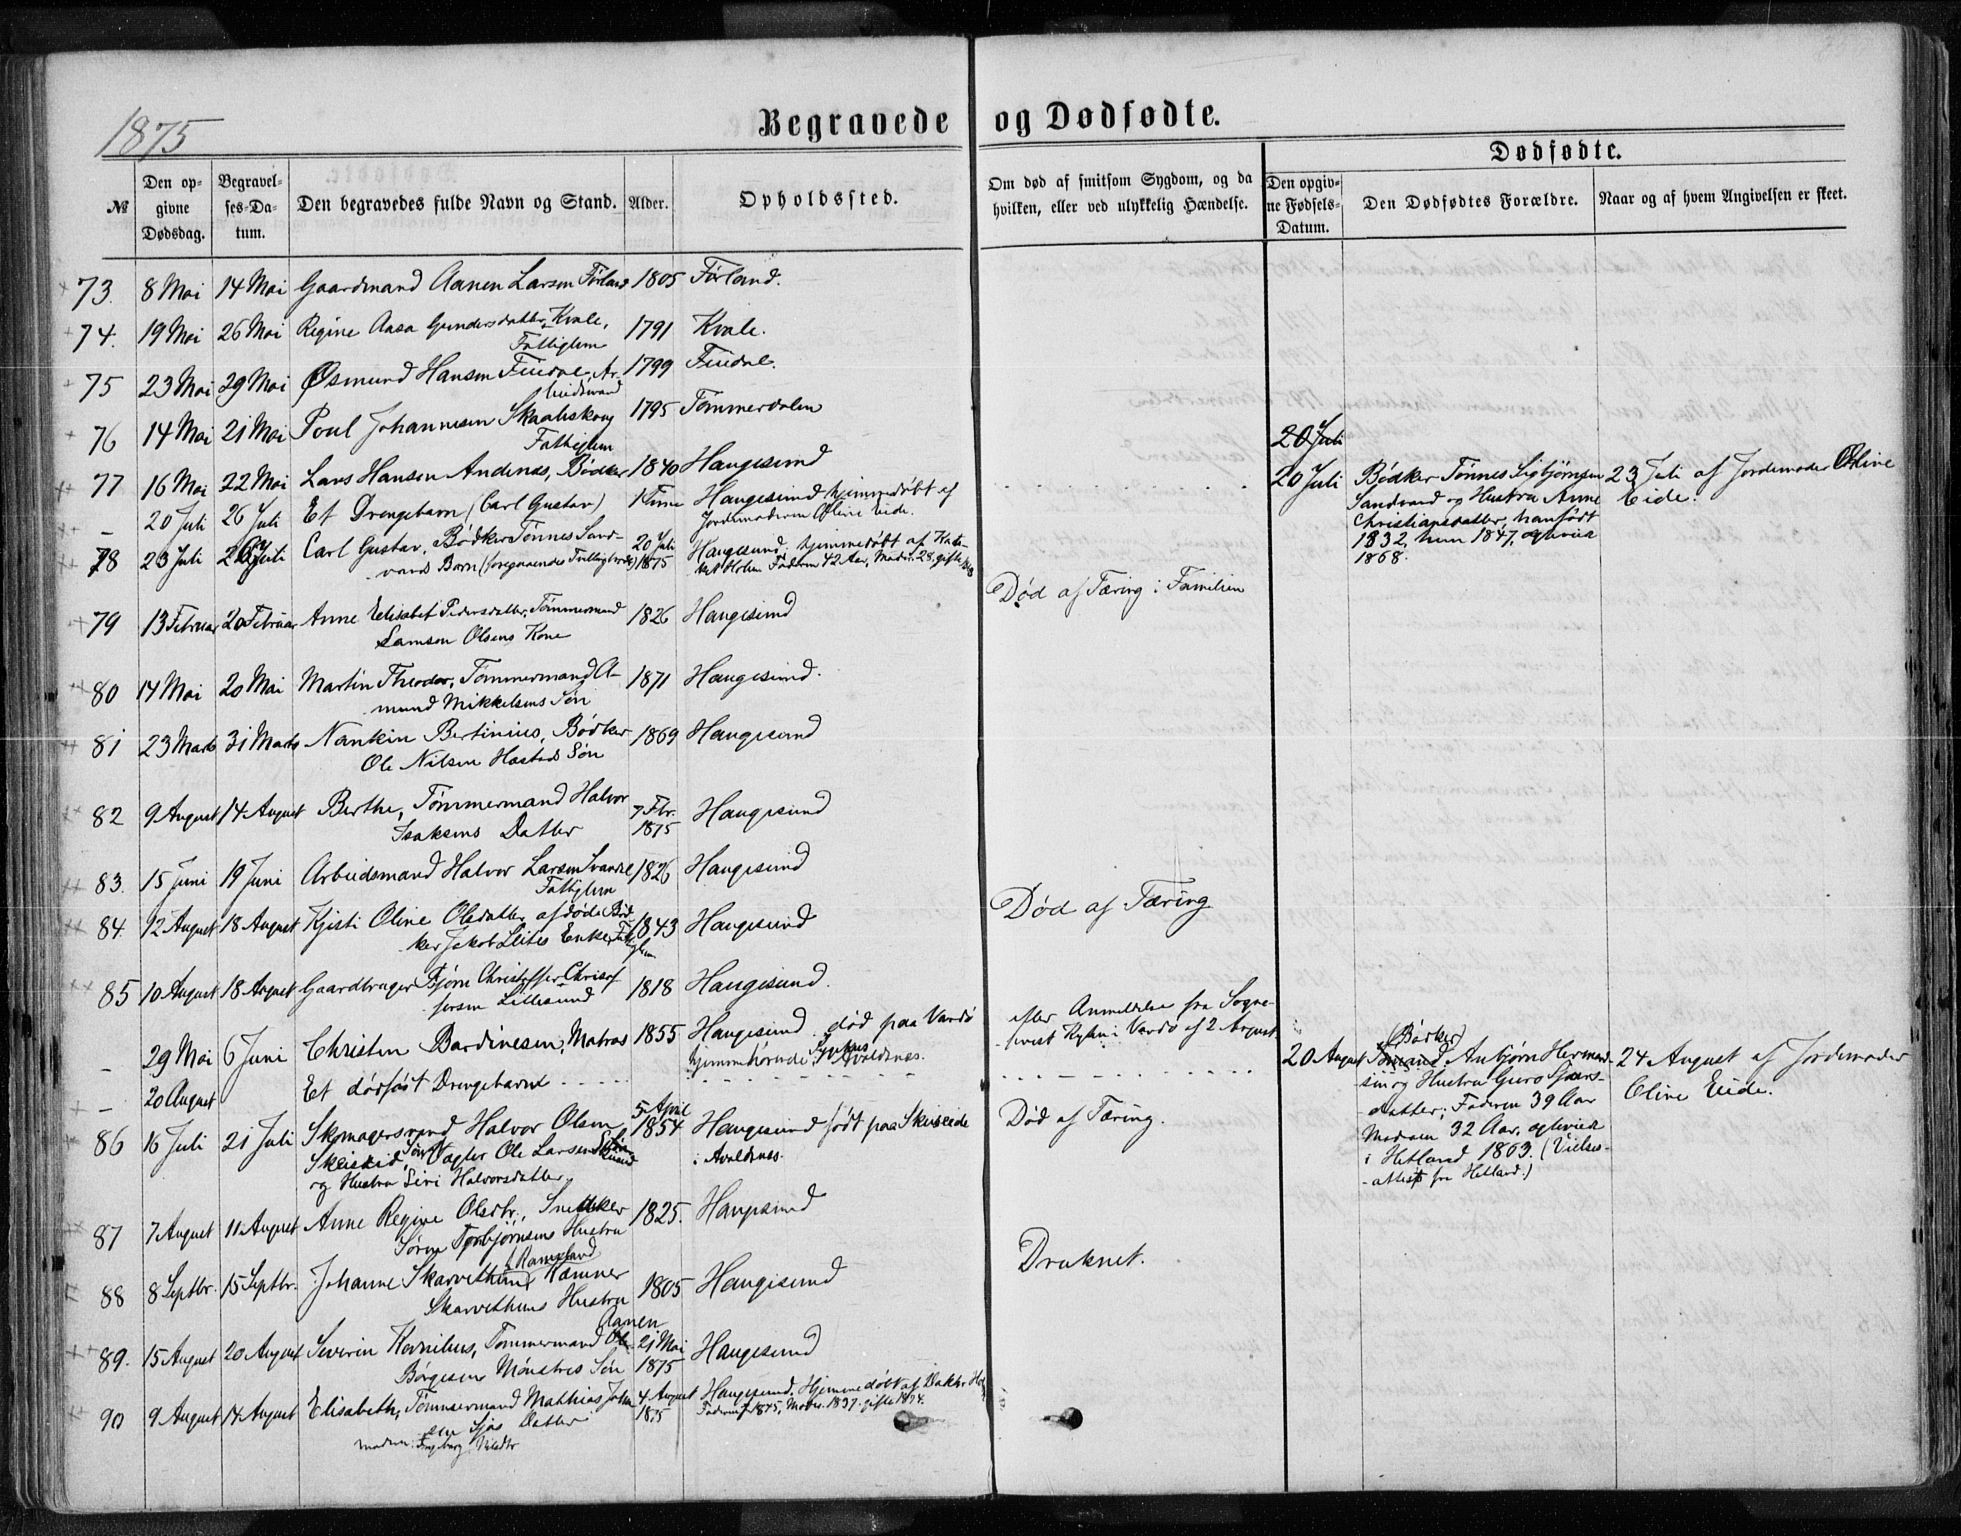 1875
Begravede og Dødfødte.
Dødfødte.
№
Den opgivne Dødsdag.
Begravelses-Datum.
Den begravedes fulde Navn og Stand.
Alder.
Opholdssted.
Om død af smitsom Sygdom, og da hvilken, eller ved ulykkelig Hændelse.
Den opgivne Fødsels-Datum.
Den Dødfødtes Forældre.
Naar og af hvem Angivelsen er skeet.
73. 8 Mai 14 Mai Gaardmand Aanen Larsen Førland 1805 Førland.
74. 19 Mai 26 Mai Regine Aasa Gundersdatter Kvale, 1791 Kvale.
Fattiglem
75 23 Mai 29 Mai Øsmund Hansen 1799
76 14 Mai 21 Mai Poul Johannesen 1795 Tømmerdalen
Fattiglem
20 Juli
77 16 Mai 22 Mai Lars Hansen Andenæs, Bødker 1840 Haugesund
– 20 Juli 26 Juli Et Drengebarn (Carl Gustav) 1 Time Haugesund hjemmedøbt af
Jordemoderen Oline Eide.
20 Juli Bødker Tønnes Sigbjørnsen
Sandvand og Hustru Anne
Christiansdatter, han født
1832, hun 1847, ægteviet
1868.
23 Juli af Jordemoder Oline
Eide.
78 23 Juli 26 Juli Carl Gustav, Bødker Tønnes Sand-
vands Barn (foregaaendes Tvillingbroder) 20 Juli 1875 Haugesund. hjemmedøbt af
Faderen 42 Aar, Mod. 28. gifte 1868
79 13 Februar 20 Februar Anne Elisabet Pedersdatter, Tømmermand 1826 Haugesund
Samson Olsens Kone
Død af Tæring i Familien
80 14 Mai 20 Mai Martin Theodor, Tømmermand A- 1871 Haugesund.
mund Mikkelsens Søn
81 23 Marts 31 Marts Nankin Bertinius, Bødker 1869 Haugesund
Ole Nilsen Hastads Søn
82 9 August 14 August Berthe, Tømmermand Halvor 7 Fbr. 1875 Haugesund
Isaksens Datter
83. 15 Juni 19 Juni Arbeidsmand Halvor Larsen 1826 Haugesund
Fattiglem
84. 12 August 18 August Kjisti Oline Olsdatter, afdøde Bød- 1843 Haugesund
ker Jakob Enke, Fattiglem
Død af Tæring
85 10 August 18 August Gaardbruger Bjørn Christoffer Christof- 1818 Haugesund.
fersen Lillesund
– 29 Mai 6 Juni Christen Bardinesen, Matros 1855 Haugesund. død paa Vardø
hjemmehørende Avaldsnes.
efter Anmeldelse fra Sogne-
præst i Vardø af 2 August
– 20 August Et dødfødt Drengebarn
20 August Bødker
Anbjørn Herman-
sen og Hustru Guro
datter; Faderen 39 Aar
Moderen 32 Aar, ægteviet
i Hetland 1863. (Vielses-
attest fra Hetland.)
24 August af Jordemoder
Oline Eide.
86 16 Juli 21 Juli Skomagersvend Halvor Olsen 5 April 1854 Haugesund født paa Skeiseide
Skeiseid, Søn af Vogter Ole Larsen
og Hustru Siri Halvorsdatter
i Avaldsnes.
Død af Tæring.
87 7 August 11 August Anne Regine Olsdtr., Snedker 1825. Haugesund
Søren Torbjørnsens Hustru
88 8 Septbr. 15 Septbr. Johanne Skarvethun, Kæmner 1805 Haugesund
Skarvethuns Hustru
Druknet.
89. 15 August 20 August Severin Kornilius, Tømmermand Aanen 21 Mai 1875 Haugesund
Børgesen Mønstres Søn
90 9 August 14 August Elisabeth, Tømmermand Mathias Johan- 4 August 1875 Haugesund. Hjemmedøbt af Doktor
sen Sjøs Datter
Faderen f. 1845, Moder. 1837. gifte 1874.
Moderen: Ingeborg